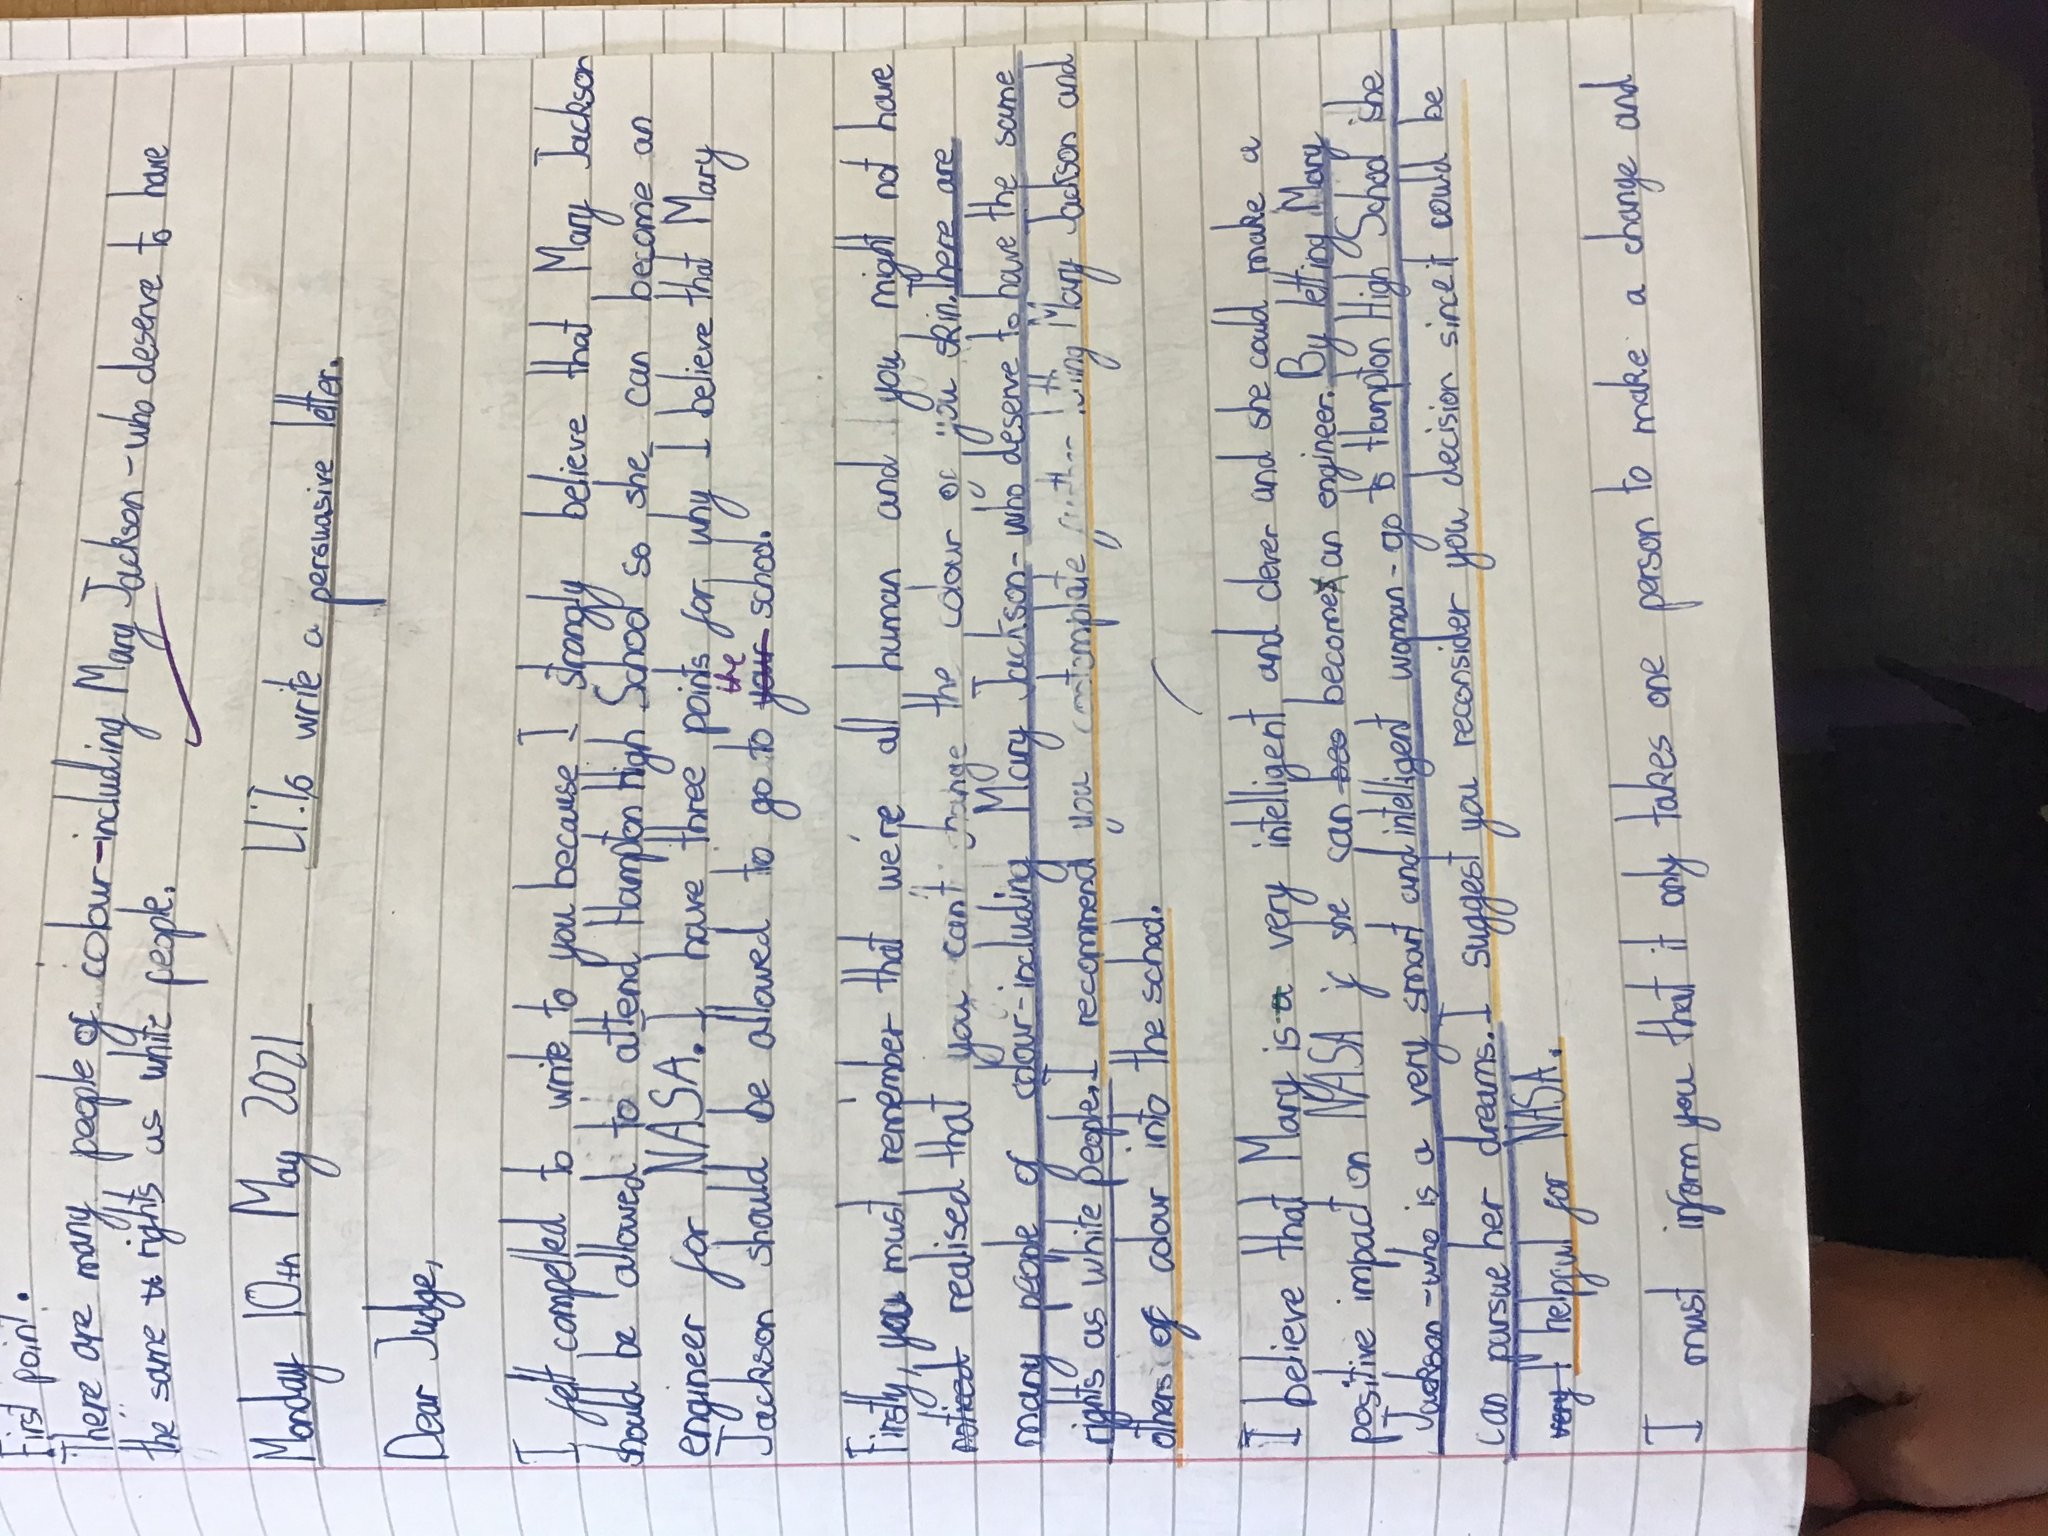 First point.
There are many people of colour-including Mary Jackson-who deserve to have
the same rights as white people.
Monday 10th May 2021 LI: to write a persuasive letter.
Dear Judge,
I felt compelled to write to you because I strongly believe that Mary Jackson
should be allowed to attend Hampton high School so she can become an
engineer for NASA. I have three points for why I believe that Mary
Jackson should be allowed to go to your the school.
Firstly, you must remember that we're all human and you might not have
noticed realised that you can't change the colour of you skin. there are
many people of colour-including Mary Jackson-who deserve to have the same
rights as white people. I recommend you contemplate letting Mary Jackson and
others of colour into the school.
I believe that Mary is a very intelligent and clever and she could make a
positive impact on NASA if she can become an engineer. By letting Mary
Jackson-who is a very smart and intelligent woman-go to Hampton High School she
can pursue her dreams. I suggest you reconsider you decision since it could be
very helpful for NASA.
I must inform you that it only takes one person to make a change and